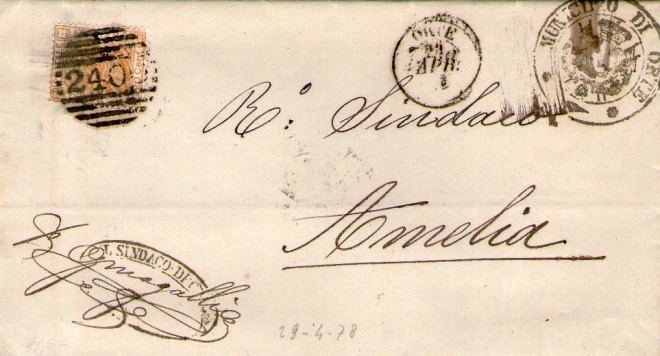 240
ORTE
APR
MUNICIPIO DI ORTE
R.º Sindaco
Amelia
IL SINDACO DI
29-4-78